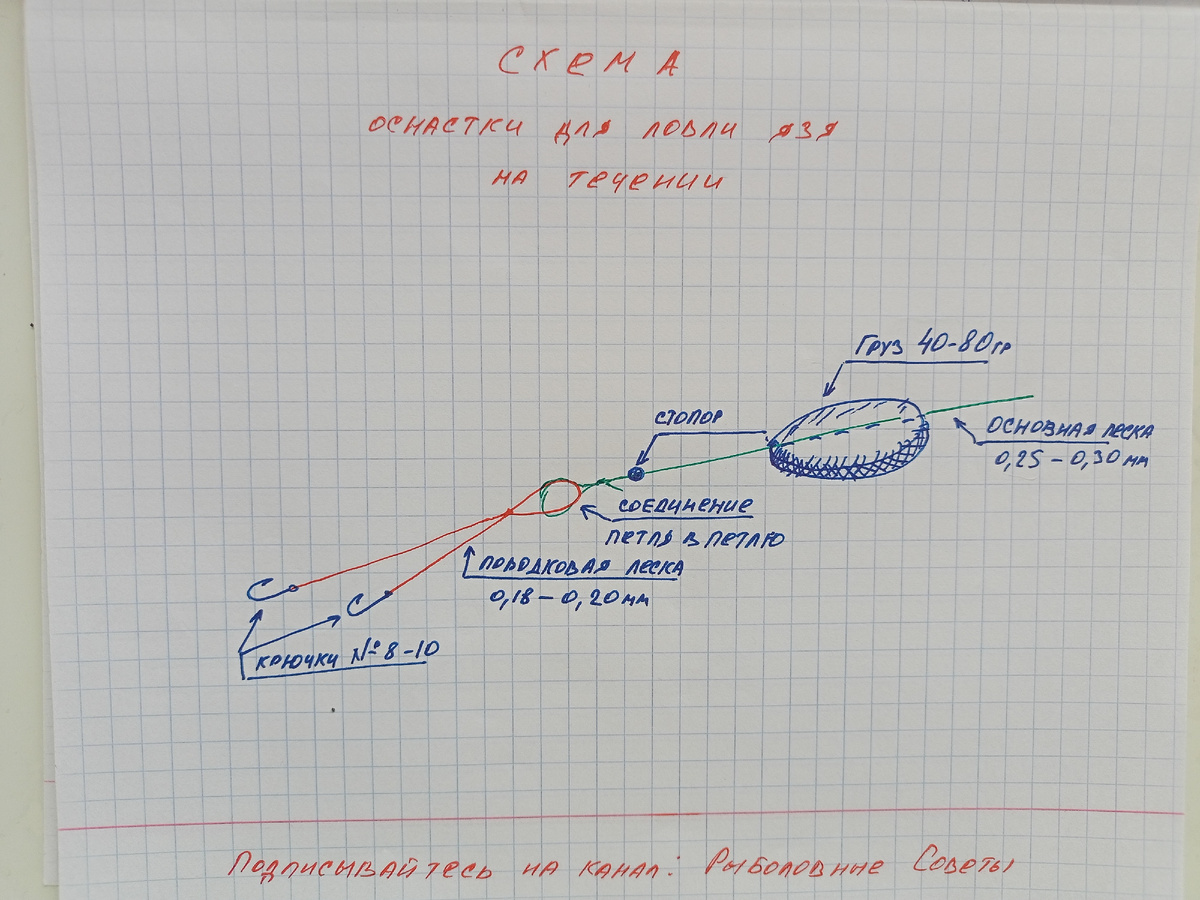 СХЕМА
ОСНАСТКИ ДЛЯ ЛОВЛИ ЯЗЯ
НА ТЕЧЕНИИ
ГРУЗ 40-80гр
СТОПОР
ОСНОВНАЯ ЛЕСКА
0,25 – 0,30 мм
СОЕДИНЕНИЕ
ПЕТЛЯ В ПЕТЛЮ
ПОВОДКОВАЯ ЛЕСКА
0,18 – 0,20 мм
КРЮЧКИ № 8-10
Подписывайтесь на канал: Рыболовные Советы